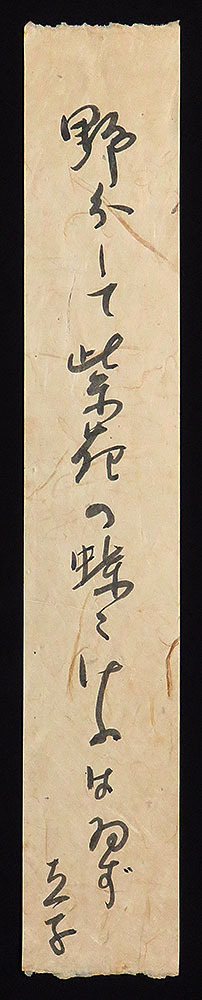 野分して紫苑の蝶々けふはゐず
立子